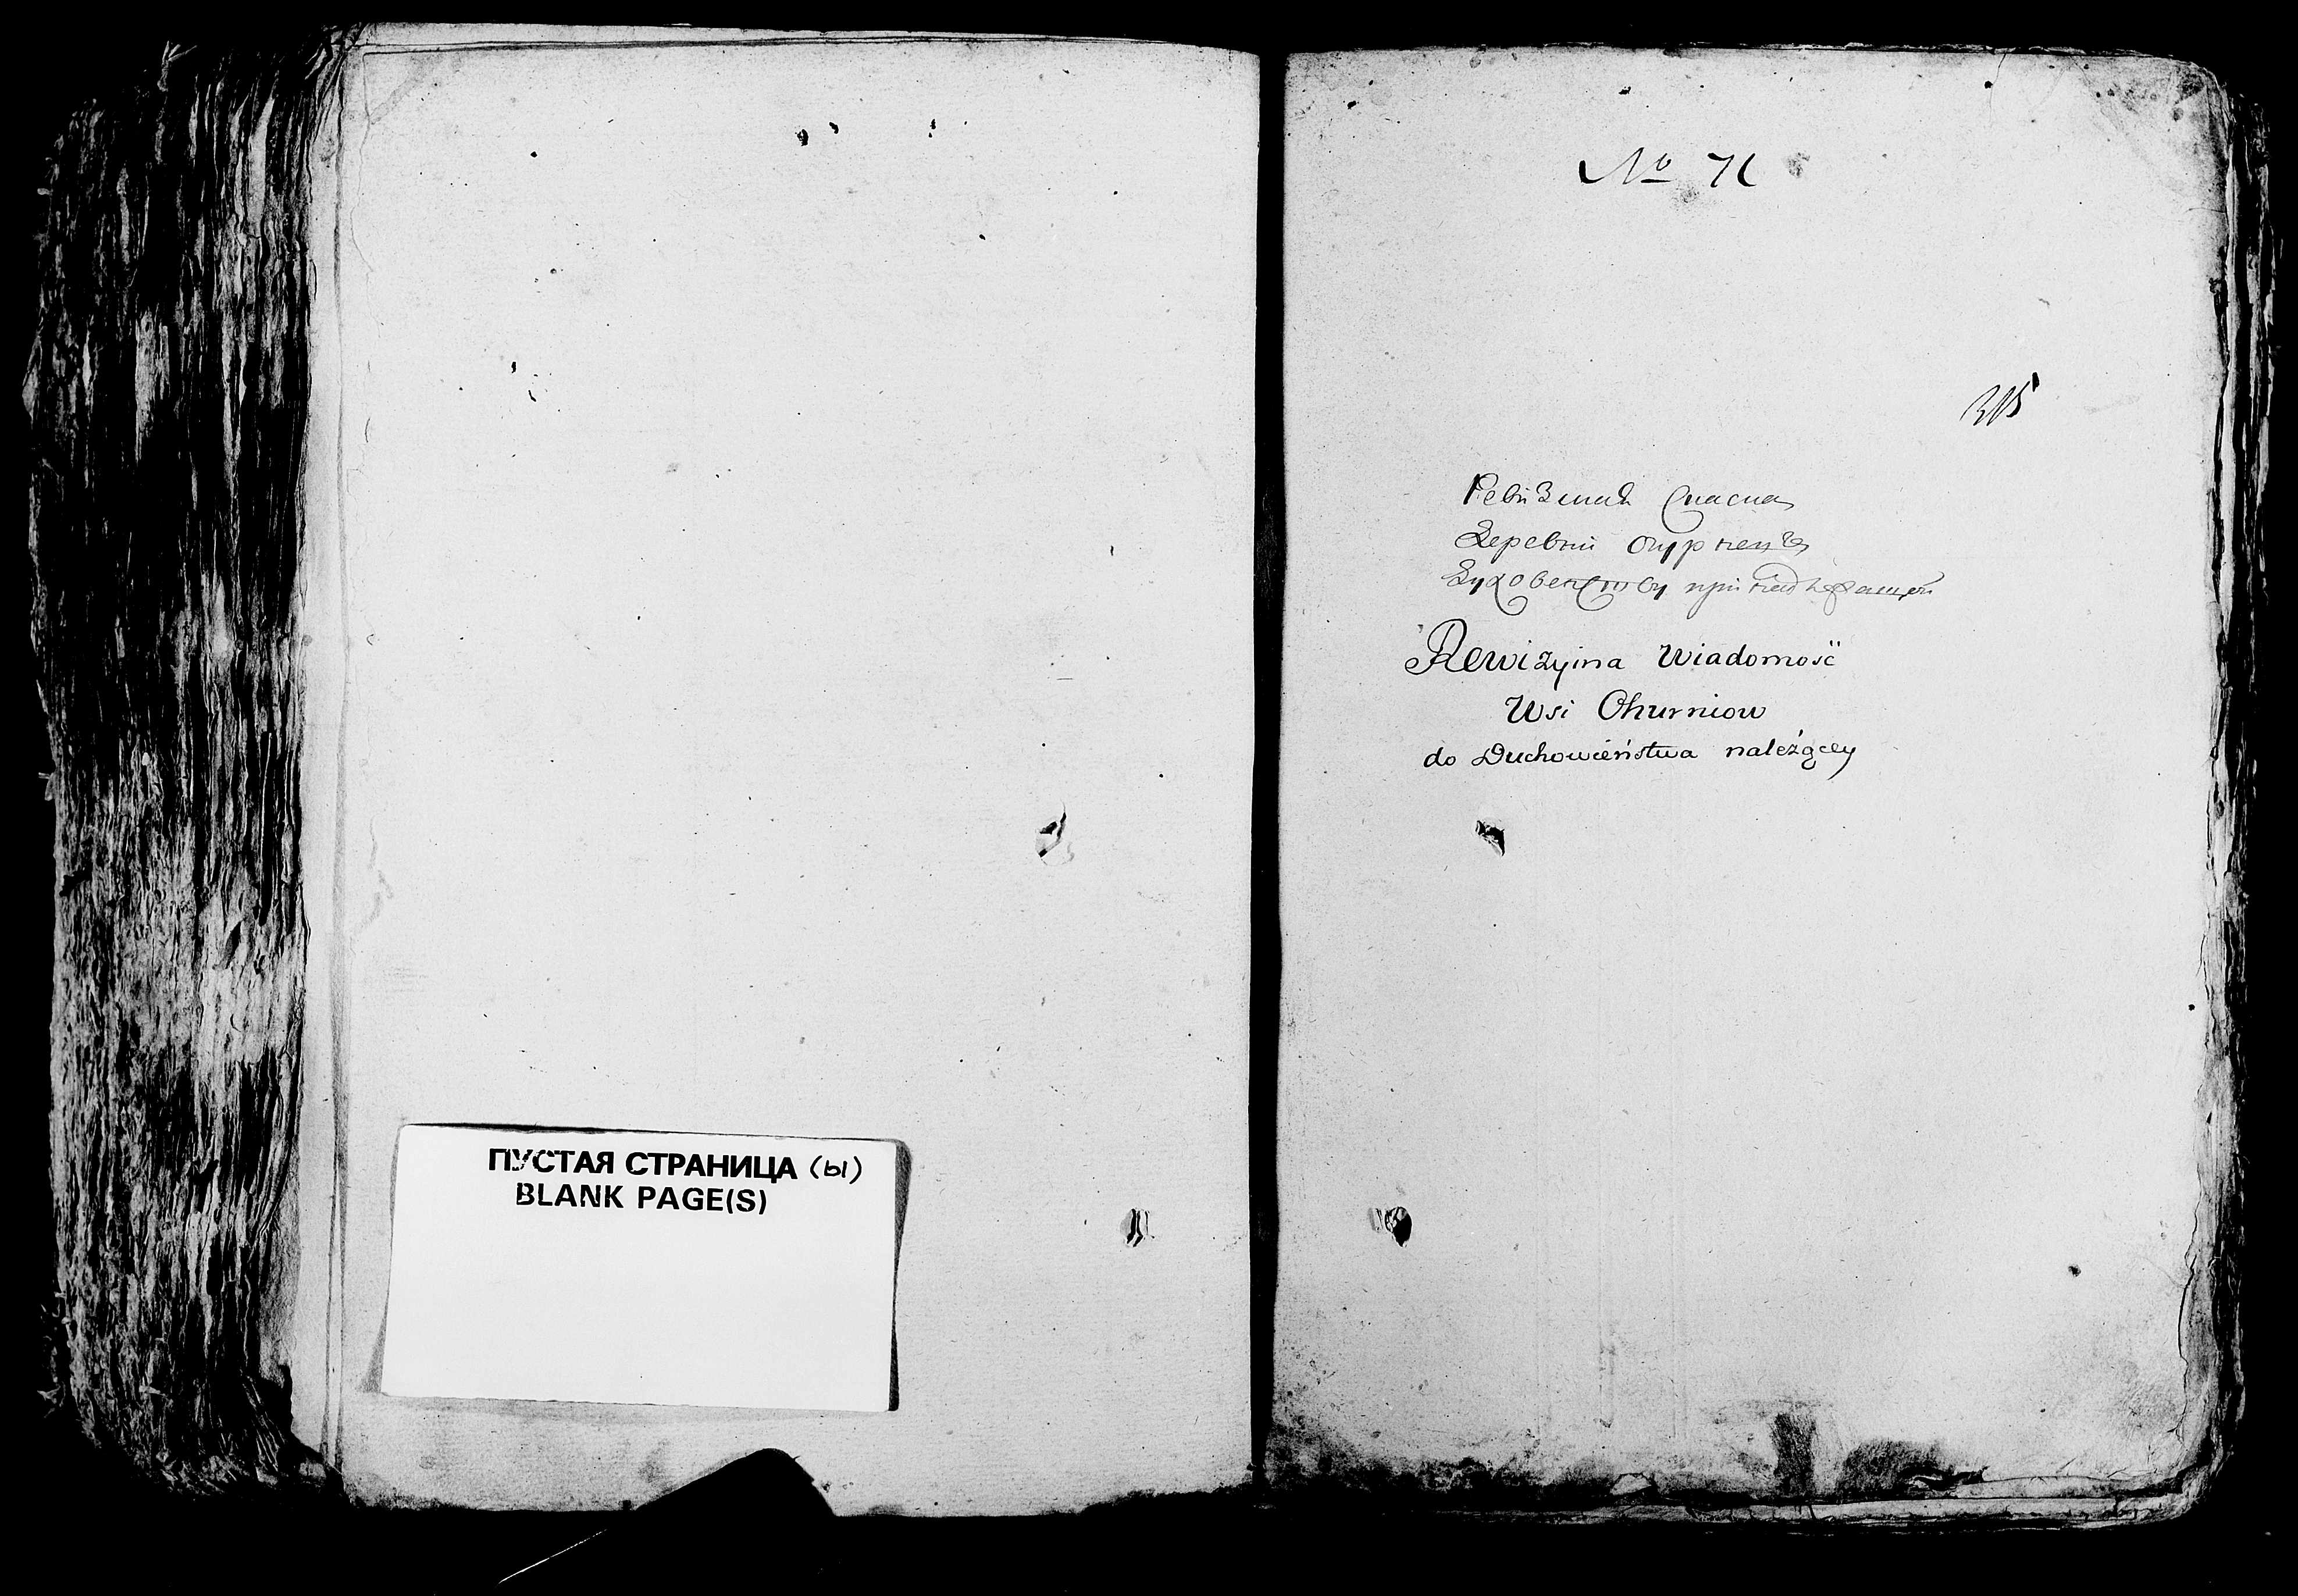 ПУСТАЯ СТРАНИЦА (ы)
BLANK PAGE(S)
№ 71
315
Ревизская Сказка
Деревни
Духовенству принадлежащей
Rewizyina Wiadomość
Wsi Ohurniow
do Duchowieństwa należącey